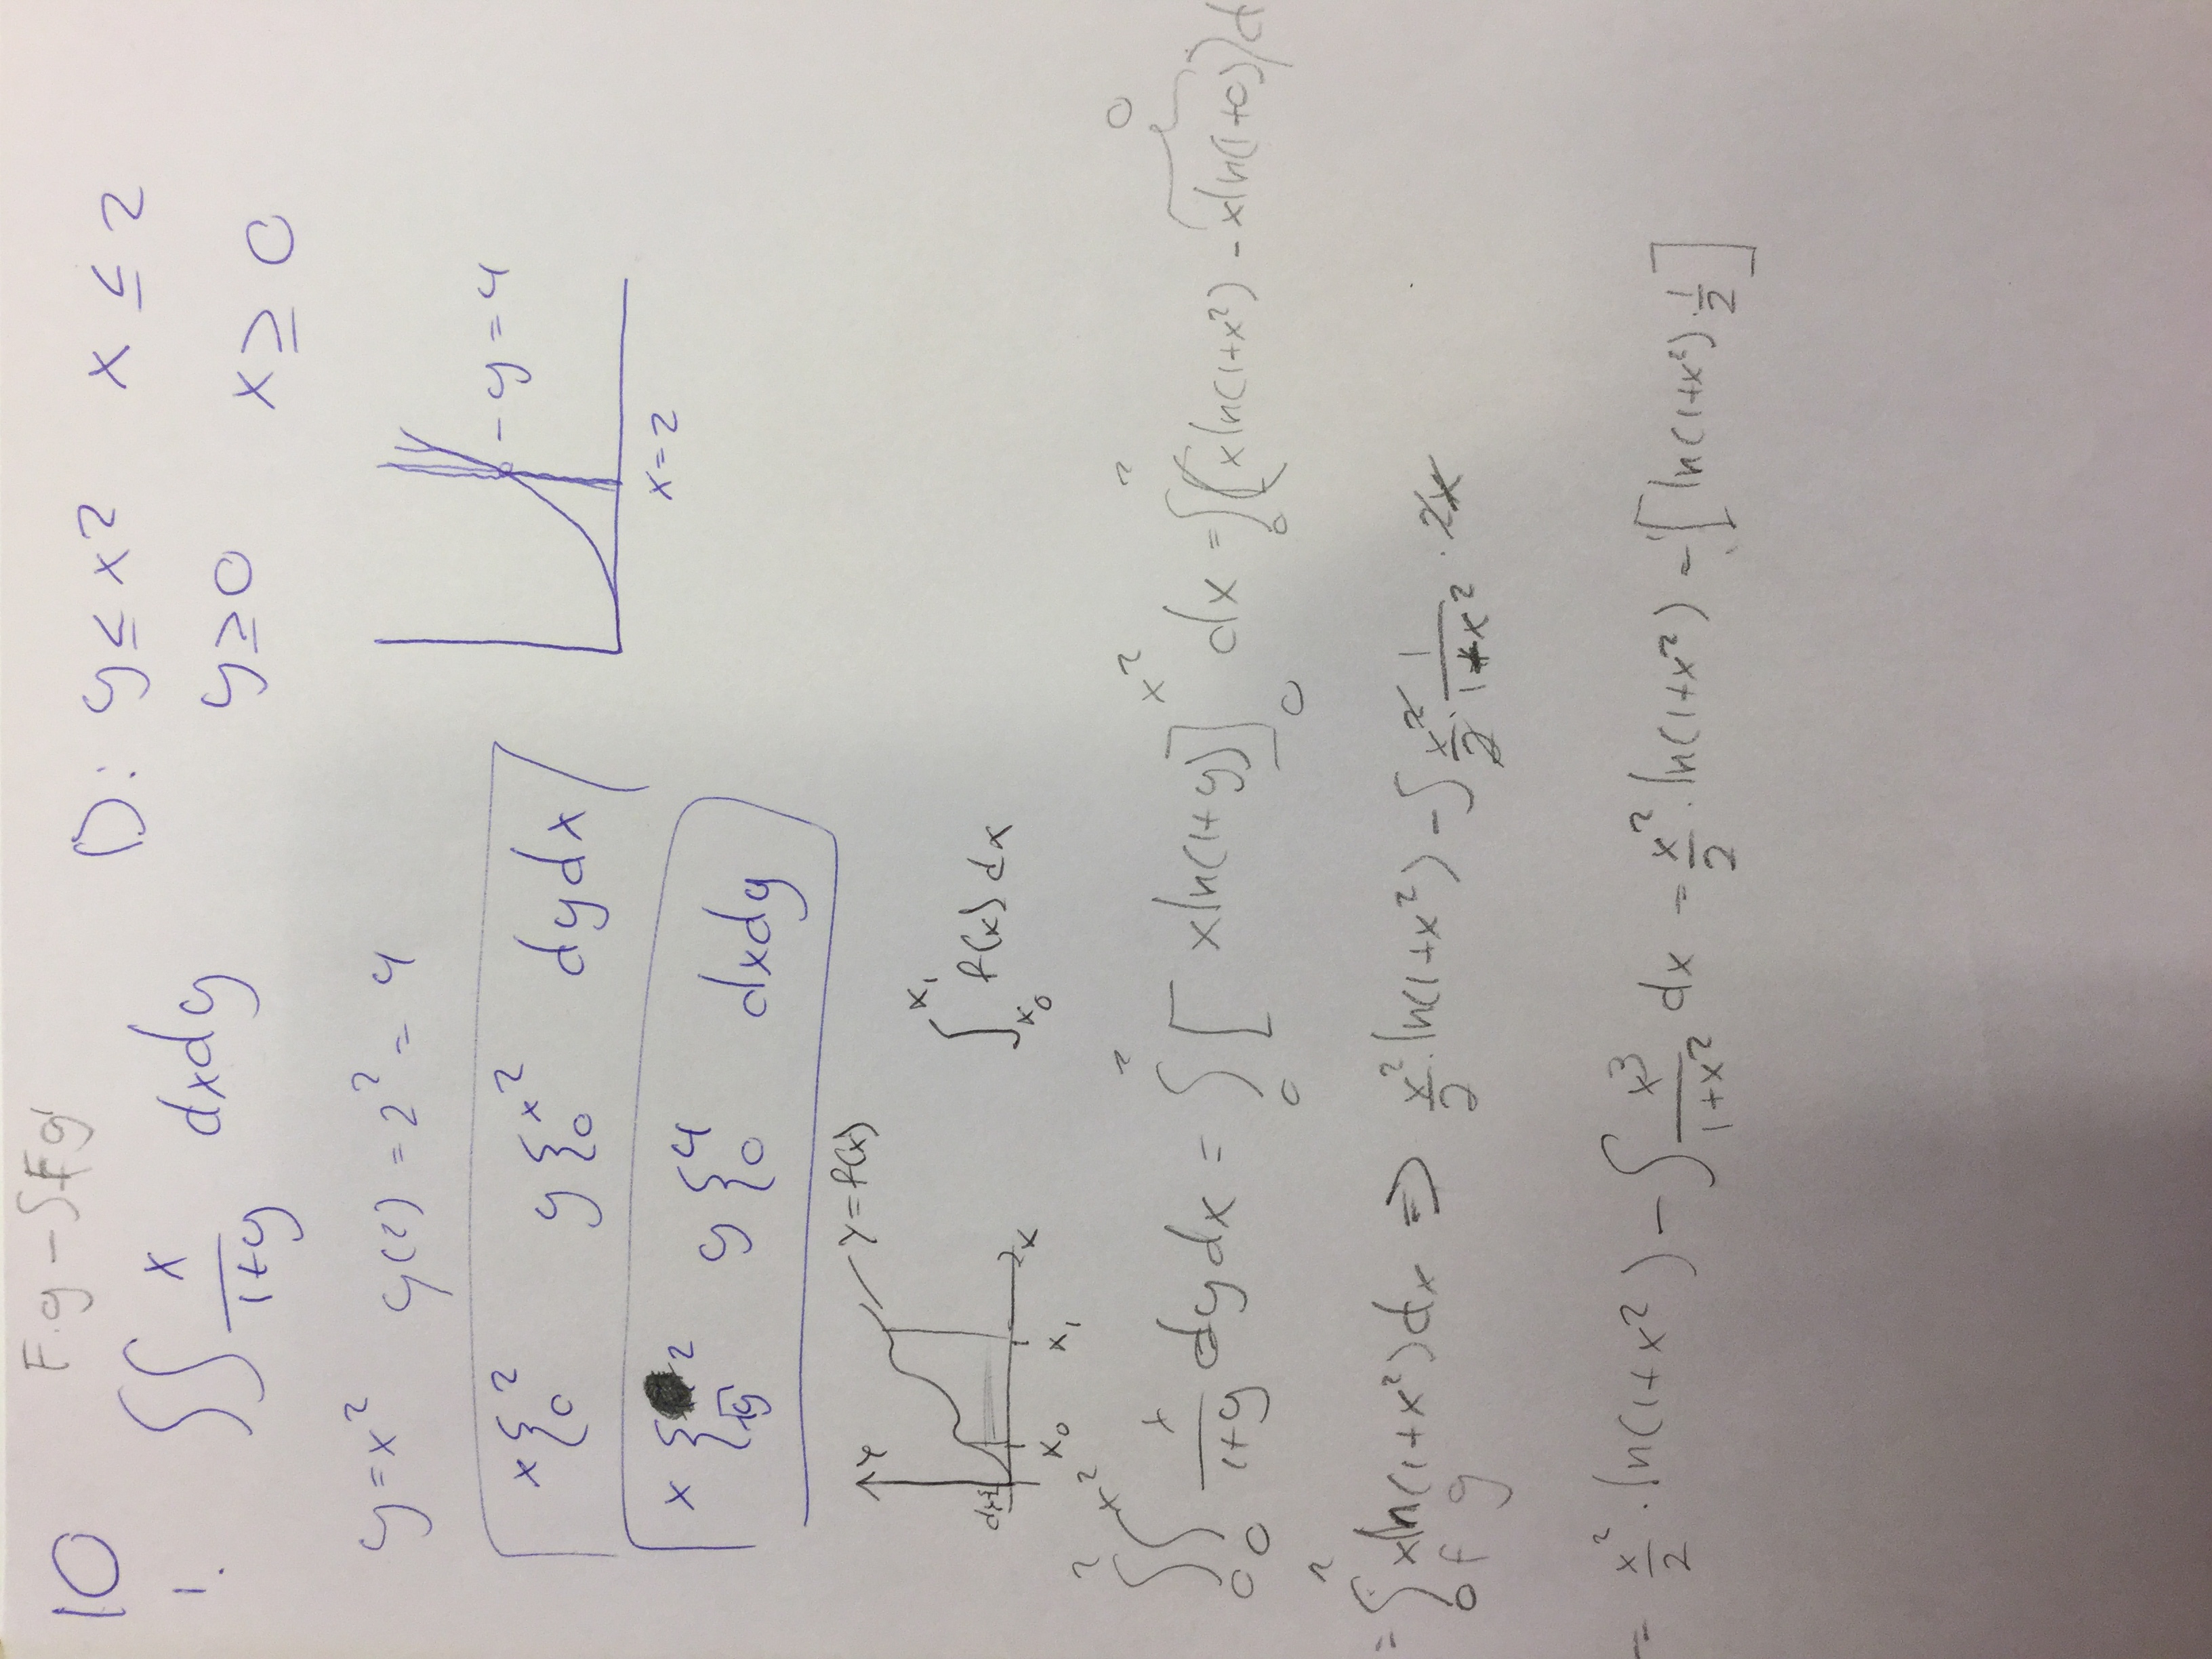 10 F·g − ∫Fg'
D: y ≤ x² x ≤ 2
1. ∫∫ x/(1+y) dxdy
y ≥ 0 x ≥ 0
y = x² y(2) = 2² = 4
− y = 4
x { 2 0 y { x² 0 dydx
x = 2
x { 2 √y y { 4 0 dxdy
y y = f(x)
∫_{x₀}^{x₁} f(x) dx
x
x₀ x₁
∫_0^2 ∫_0^{x²} x/(1+y) dydx = ∫_0^2 [x ln(1+y)]_0^{x²} dx = ∫_0^2 (x ln(1+x²) − x ln(1+0)) d
0
= ∫_0^2 x ln(1+x²) dx ⇒ x²/2 · ln(1+x²) − ∫ x²/2 · 1/(1+x²) · 2x
f g
= x²/2 · ln(1+x²) − ∫ x³/(1+x²) dx = x²/2 · ln(1+x²) − [ln(1+x²) · 1/2]